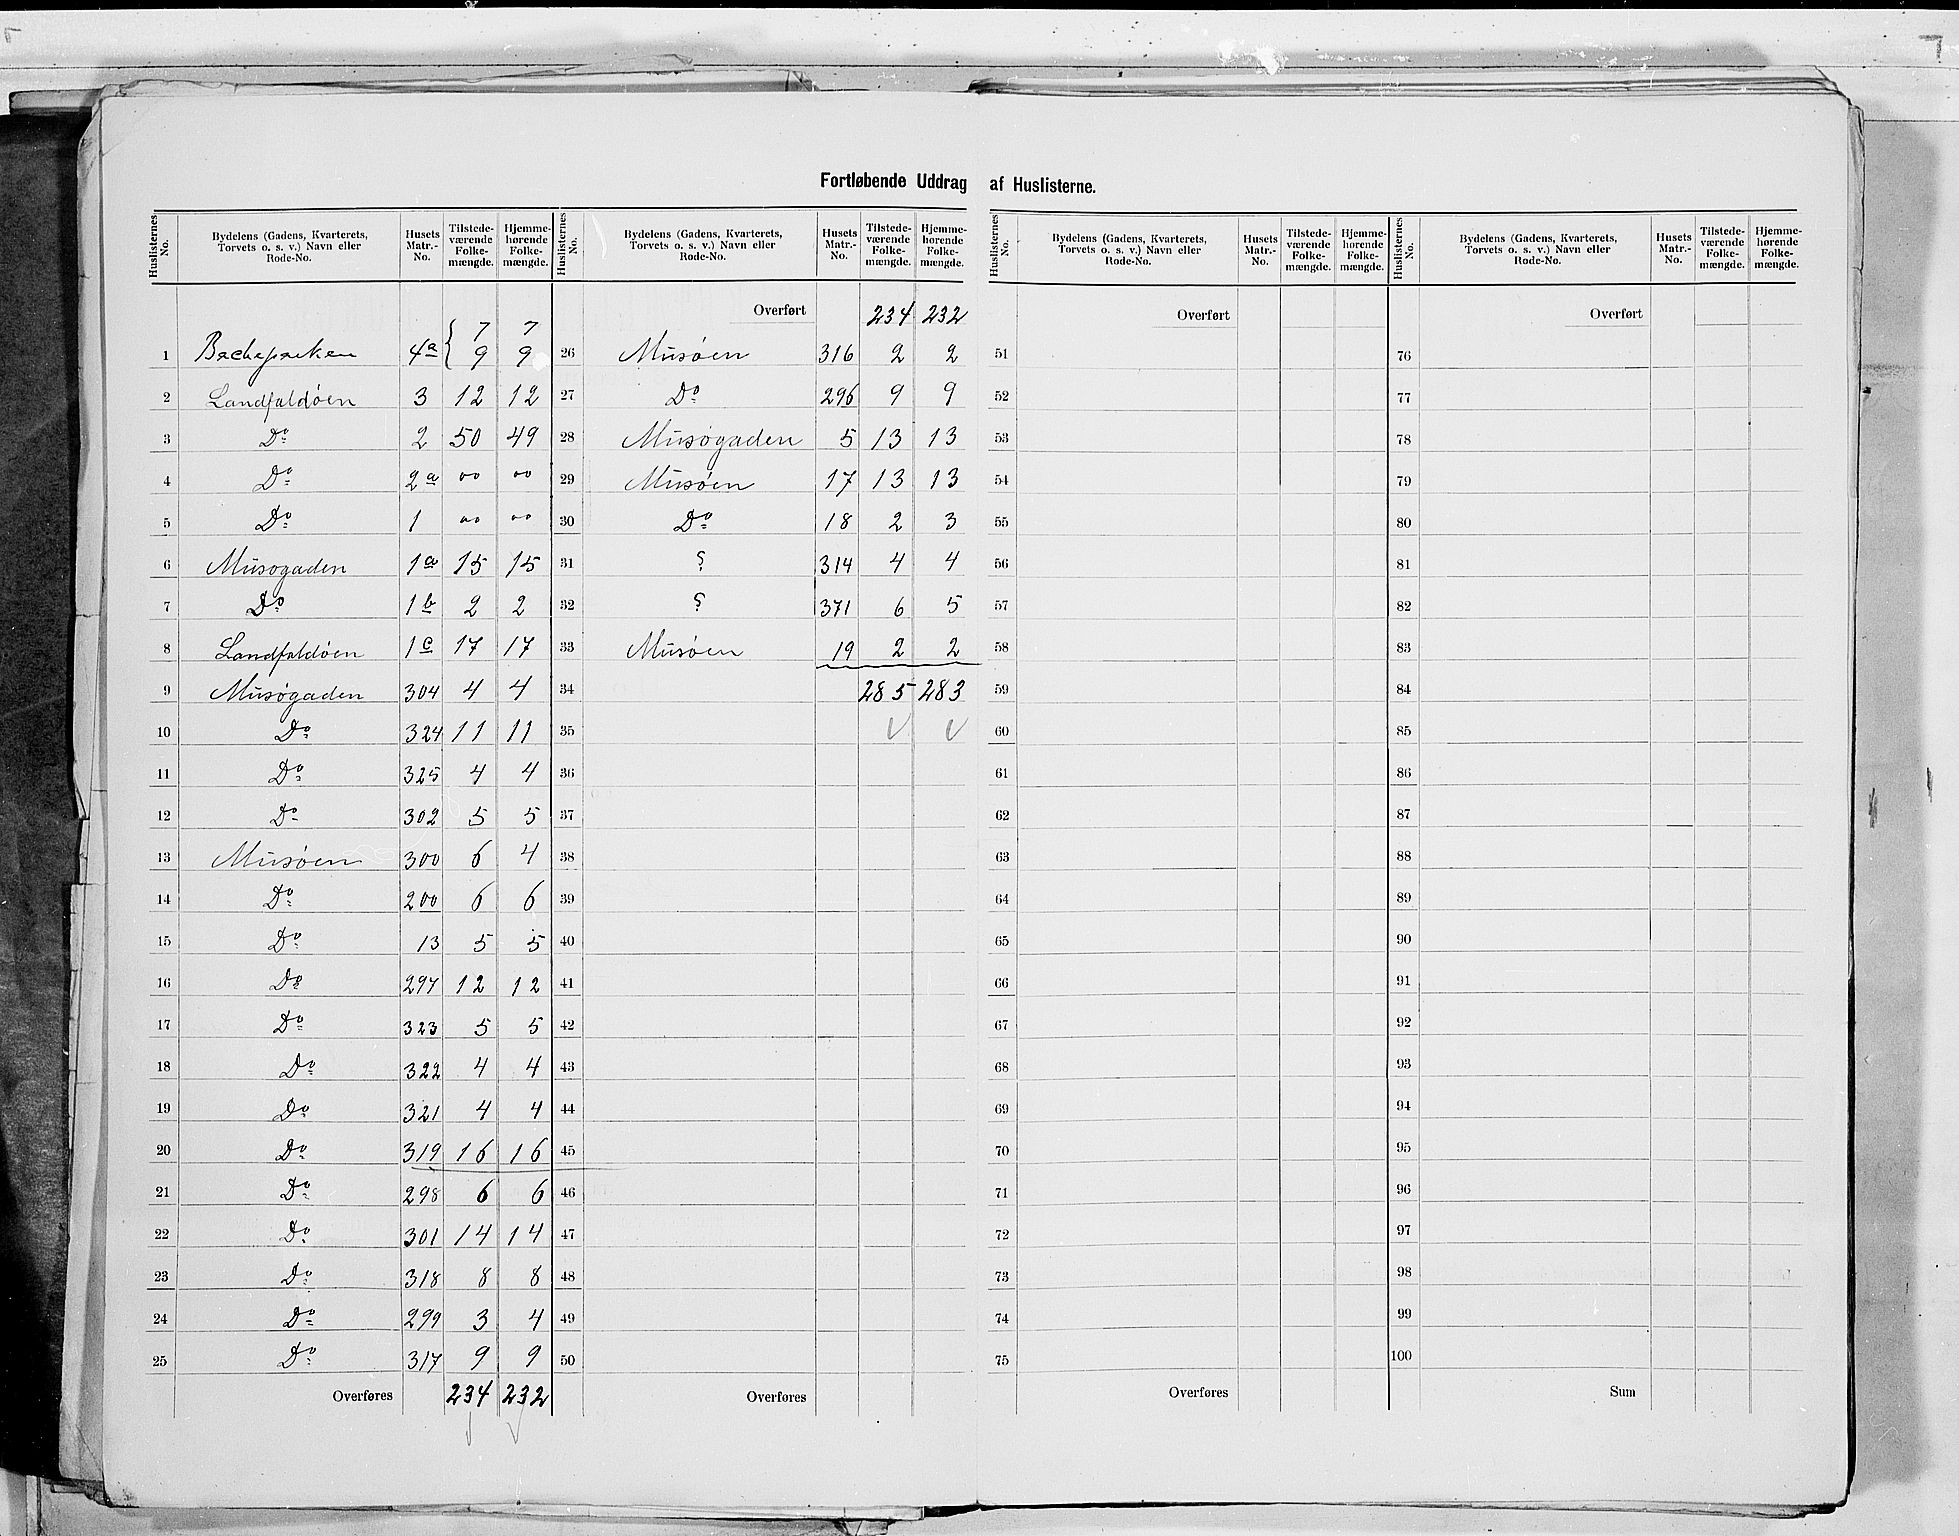 Fortløbende Uddrag af Huslisterne.
Huslisternes No. | Bydelens (Gadens, Kvarterets, Torvets o. s. v.) Navn eller Rode-No. | Husets Matr.-No. | Tilstedeværende Folkemængde. | Hjemmehørende Folkemængde.
7 7
1 Bacheparken 4a { 9 9
2 Landfaldøen 3 12 12
3 Do 2 50 49
4 Do 2a oo oo
5 Do 1 oo oo
6 Musøgaden 1a 15 15
7 Do 1b 2 2
8 Landfaldøen 1c 17 17
9 Musøgaden 304 4 4
10 Do 324 11 11
11 Do 325 4 4
12 Do 302 5 5
13 Musøen 300 6 4
14 Do 200 6 6
15 Do 13 5 5
16 Do 297 12 12
17 Do 323 5 5
18 Do 322 4 4
19 Do 321 4 4
20 Do 319 16 16
21 Do 298 6 6
22 Do 301 14 14
23 Do 318 8 8
24 Do 299 3 4
25 Do 317 9 9
Overføres 234 232
Huslisternes No. | Bydelens (Gadens, Kvarterets, Torvets o. s. v.) Navn eller Rode-No. | Husets Matr.-No. | Tilstedeværende Folkemængde. | Hjemmehørende Folkemængde.
Overført 234 232
26 Musøen 316 2 2
27 Do 296 9 9
28 Musøgaden 5 13 13
29 Musøen 17 13 13
30 Do 18 2 3
31 ? 314 4 4
32 ? 371 6 5
33 Musøen 19 2 2
34 285 283
35
36
37
38
39
40
41
42
43
44
45
46
47
48
49
50
Overføres
Huslisternes No. | Bydelens (Gadens, Kvarterets, Torvets o. s. v.) Navn eller Rode-No. | Husets Matr.-No. | Tilstedeværende Folkemængde. | Hjemmehørende Folkemængde.
Overført
51
52
53
54
55
56
57
58
59
60
61
62
63
64
65
66
67
68
69
70
71
72
73
74
75
Overføres
Huslisternes No. | Bydelens (Gadens, Kvarterets, Torvets o. s. v.) Navn eller Rode-No. | Husets Matr.-No. | Tilstedeværende Folkemængde. | Hjemmehørende Folkemængde.
Overført
76
77
78
79
80
81
82
83
84
85
86
87
88
89
90
91
92
93
94
95
96
97
98
99
100
Sum